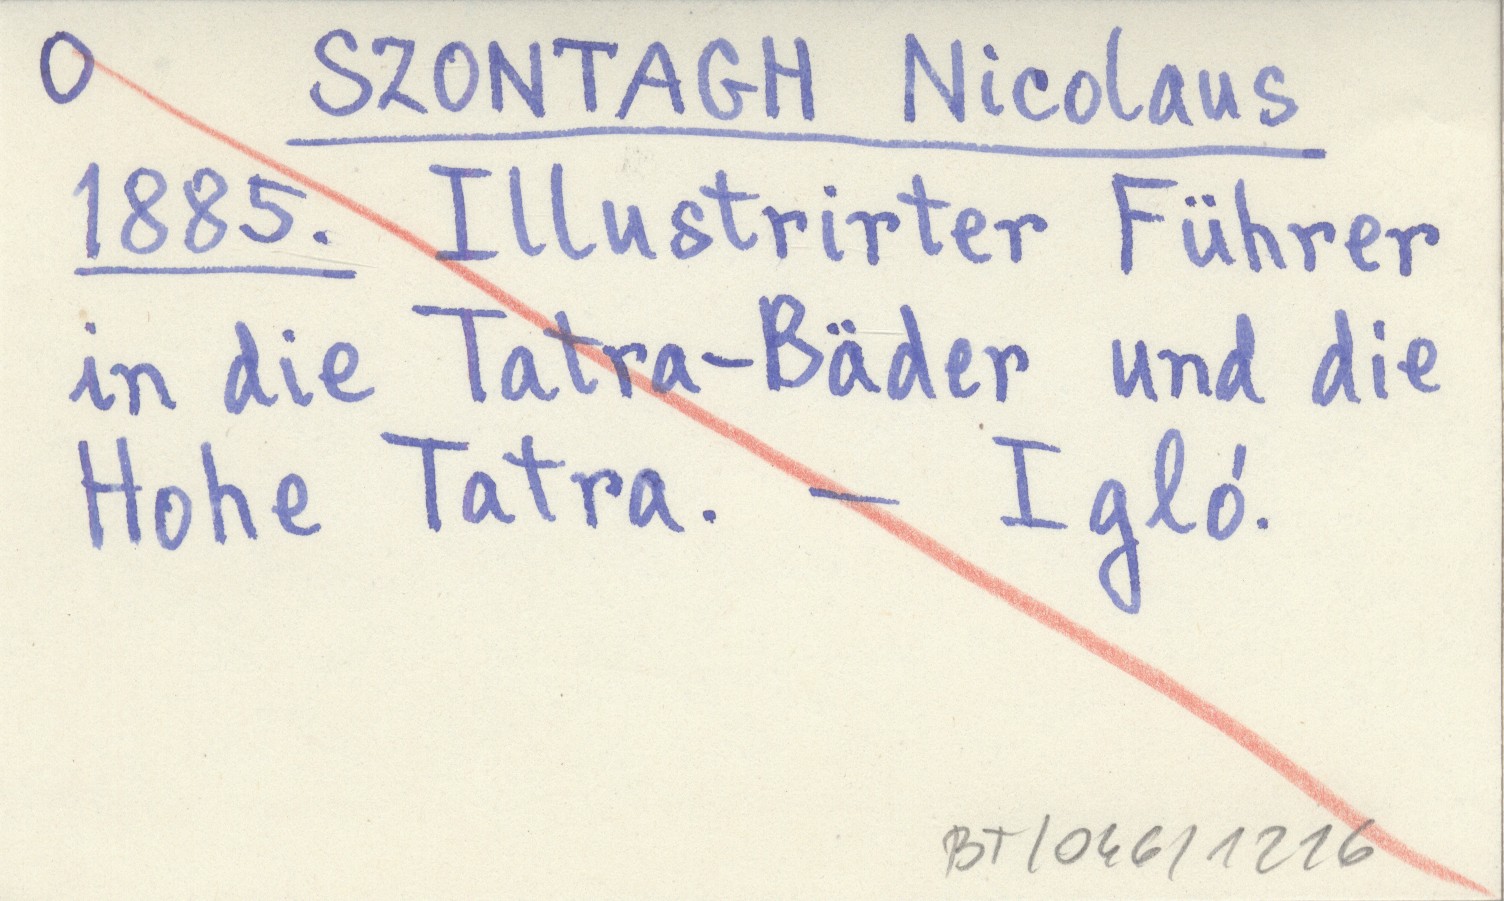 O SZONTAGH Nicolaus
1885. Illustrirter Führer
in die Tatra-Bäder und die
Hohe Tatra. — Igló.
BT/046/1216